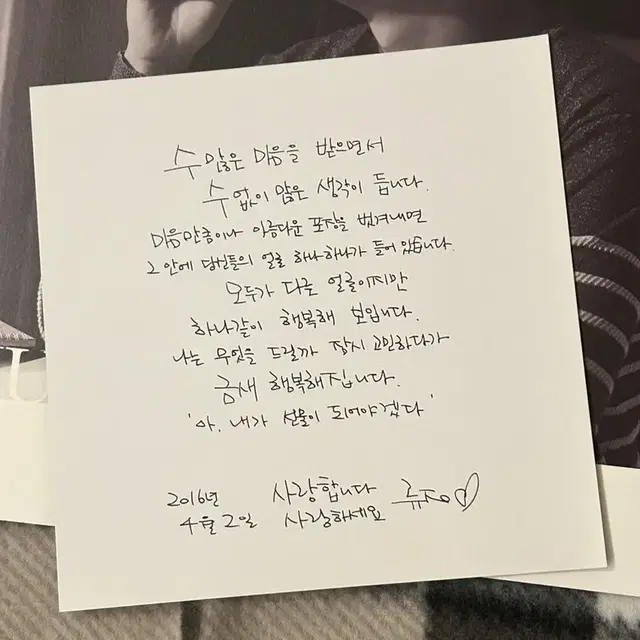 수많은 마음을 받으면서
수없이 많은 생각이 듭니다.
마음만큼이나 아름다운 포장을 벗겨내면
그 안에 당신들의 얼굴 하나하나가 들어 있습니다.
모두가 다른 얼굴이지만
하나같이 행복해 보입니다.
나는 무엇을 드릴까 잠시 고민하다가
금새 행복해집니다.
'아. 내가 선물이 되어야겠다'
2016년 사랑합니다
4월 2일 사랑하세요